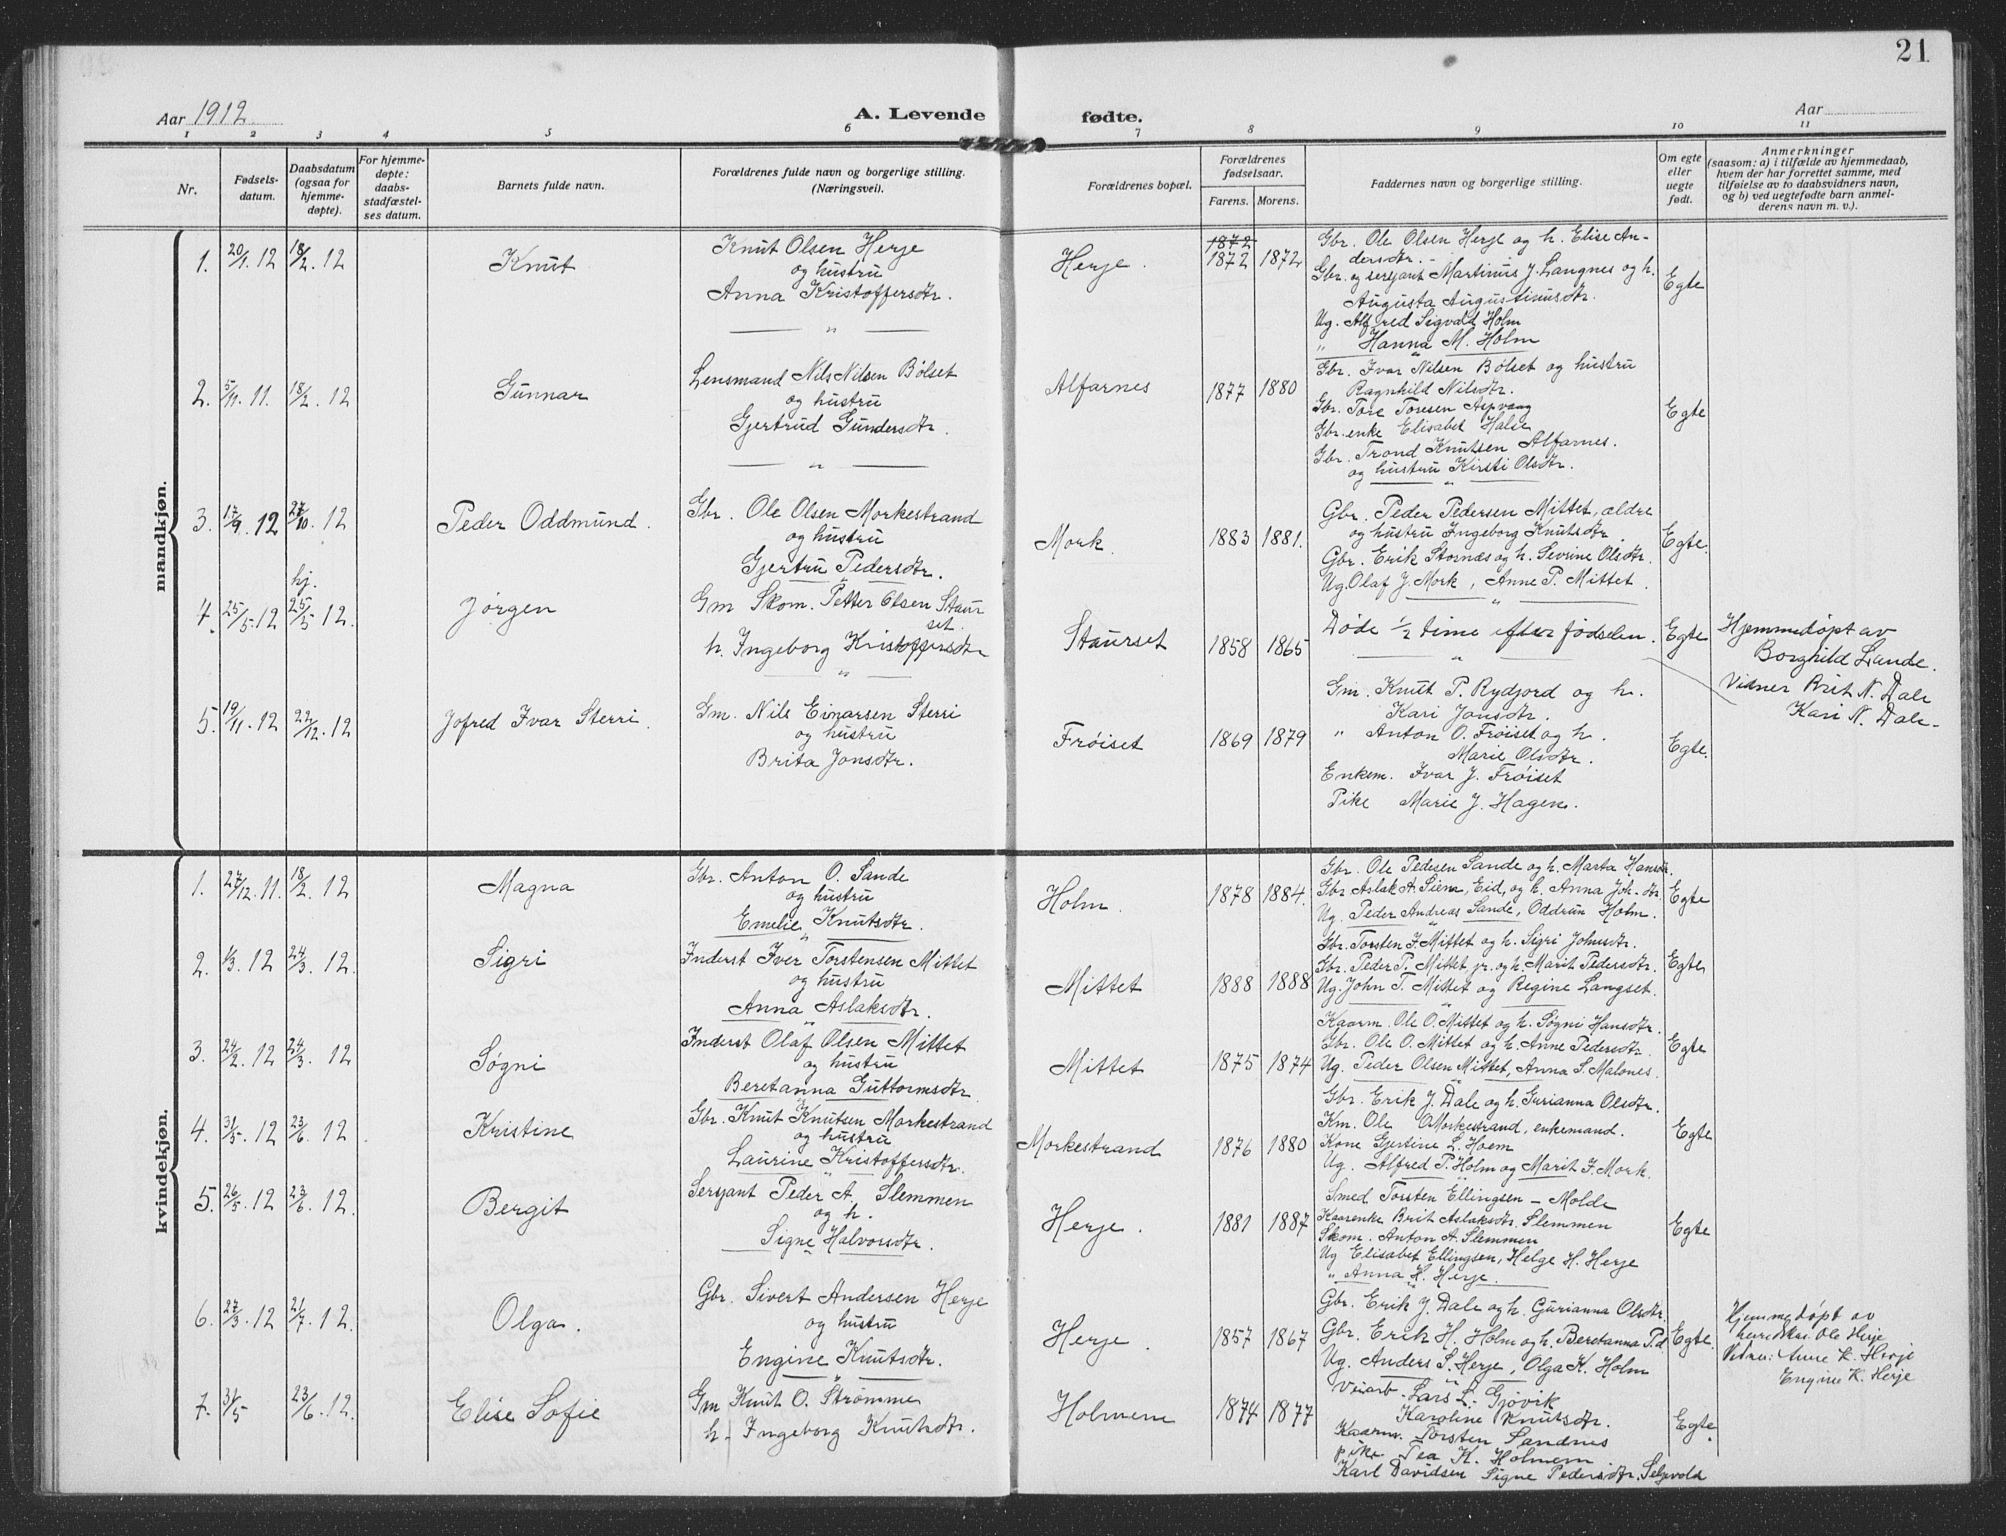 21
Aar 1912
A. Levende fødte.
Aar
1 2 3 4 5 6 7 8 9 10 11
Nr.
Fødsels-
datum.
Daabsdatum
(ogsaa for
hjemme-
døpte).
For hjemme-
døpte:
daabs-
stadfæstel-
ses datum.
Barnets fulde navn.
Forældrenes fulde navn og borgerlige stilling.
(Næringsvei).
Forældrenes bopæl.
Forældrenes
fødselsaar.
Farens. Morens.
Faddernes navn og borgerlige stilling.
Om egte
eller
uegte
født.
Anmerkninger
(saasom: a) i tilfælde av hjemmedaab,
hvem der har forrettet samme, med
tilføielse av to daabsvidners navn,
og b) ved uegtefødte barn anmel-
derens navn m. v.).
mandkjøn.
1. 20/1. 12 18/2. 12
Knut
Knut Olsen Herje
og hustru
Anna Kristoffersdtr.
Herje.
1872
1872 1872
Gbr. Ole Olsen Herje og h. Elise An-
dersdtr.
Gbr. og sersjant Martinus J. Langnes og h.
Augusta Augustinusdtr.
Ug. Alfred Sigvald Holm
" Hanna M. Holm
Egte
2. 5/11. 11. 18/2. 12
Gunnar
Lensmand Nils Nilsen Bølset
og hustru
Gjertrud Gundersdtr.
Alfarnes
1877 1880
Gbr. Ivar Nilsen Bølset og hustru
Ragnhild Nilsdtr.
Gbr. Tore Toresen Aspvaag
Gbr. enke Elisabet Halse
Gbr. Trond Knutsen Alfarnes.
og hustru Kirsti Olsdtr.
Egte
3. 17/9. 12 27/10. 12
Peder Oddmund.
Gbr. Ole Olsen Morkestrand
og hustru
Gjertru Pedersdtr.
Mork.
1883 1881.
Gbr. Peder Pedersen Mittet, ældre
og hustru Ingeborg Knutsdtr.
Gbr. Erik Stornæs og h. Sevrine Olsdtr.
Ug. Olaf J. Mork, Anne P. Mittet.
Egte.
4. 25/5. 12 hj. 25/5. 12.
Jørgen
Gm Skom. Petter Olsen Staur
set.
h. Ingeborg Kristoffersdtr
Staurset
1858 1865
Døde 1/2 time efter fødselen.
Egte
Hjemmedøpt av
Borghild Lande.
Vidner Brit N. Dale
Kari N. Dale.
5. 19/11. 12 22/12. 12
Jofred Ivar Sterri.
Gm. Nils Einarsen Sterri
og hustru
Brita Jonsdtr.
Frøiset
1869 1879
Gm. Knut P. Rydjord og h.
Kari Jonsdtr.
" Anton O. Frøiset og h.
Marie Olsdtr.
Enkem. Ivar J. Frøiset
Pike Marie J. Hagen.
Egte.
kvindekjøn.
1. 27/12. 11. 18/2. 12
Magna
Gbr. Anton O. Sande
og hustru
Emelie Knutsdtr.
Holm.
1878 1884.
Gbr. Ole Pedesen Sande og h. Marta Hansdtr.
Gbr Aslak A. Siem, Eid, og h. Anna Joh. dtr
Ug. Peder Andreas Sande, Oddrun Holm.
Egte
2. 1/3. 12 24/3. 12.
Sigri
Inderst Iver Torstensen Mittet
og hustru
Anna Aslaksdtr.
Mittet
1888 1888
Gbr. Torsten I. Mittet og h. Sigri Johnsdtr.
Gbr. Peder P. Mittet jr. og h. Marit Pedersdtr.
Ug. John T. Mittet og Regine Langset.
Egte
3. 24/2. 12 24/3. 12
Søgni
Inderst Olaf Olsen Mittet
og hustru
Beretanna Guttormsdtr.
Mittet
1875 1874
Kaarm. Ole O. Mittet og h. Søgni Hansdtr.
Gbr. Ole O. Mittet og h. Anne Pedersdtr.
Ug. Peder Olsen Mittet, Anna S. Malones.
Egte
4. 31/5. 12 23/6. 12.
Kristine
Gbr. Knut Knutsen Morkestrand
og hustru
Laurine Kristoffersdtr.
Morkestrand
1876 1880
Gbr. Erik J. Dale og h. Gurianna Olsdtr.
Km. Ole Morkestrand, enkemand.
Kone Gjertine L. Hoem
Ug. Alfred P. Holm og Marit I. Mork.
Egte
5. 26/5. 12 23/6. 12.
Bergit
Sersjant Peder A. Slemmen
og h.
Signe Halvorsdtr.
Herje.
1881 1887
Smed Torsten Ellingsen – Molde
Kaarenke Brit Aslaksdtr. Slemmen
Skom. Anton A. Slemmen
Ug Elisabet Ellingsen, Helge H. Herje
" Anna H. Herje.
Egte
6. 27/3. 12 21/7. 12.
Olga.
Gbr. Sivert Andersen Herje
og hustru
Engine Knutsdtr.
Herje.
1857 1867
Gbr. Erik J. Dale og h. Gurianna Olsdtr.
Gbr. Erik H. Holm og h. Beretanna P.d
Ug. Anders S. Herje, Olga K. Holm
Egte.
Hjemmedøpt av
Ole Herje
Vidner: Anne K. Herje
Engine K. Herje
7. 31/5 23/6. 12.
Elise Sofie
Gm Knut O. Strømme
h. Ingeborg Knutsdtr.
Holmem
1874 1877
Veiarb. Lars L. Gjøvik
Karoline Knutsdtr.
Kaarm. Torsten Sandnes
pike Tea K. Holmem
Karl Davidsen Signe Pedersdtr. Seljevold
Egte.